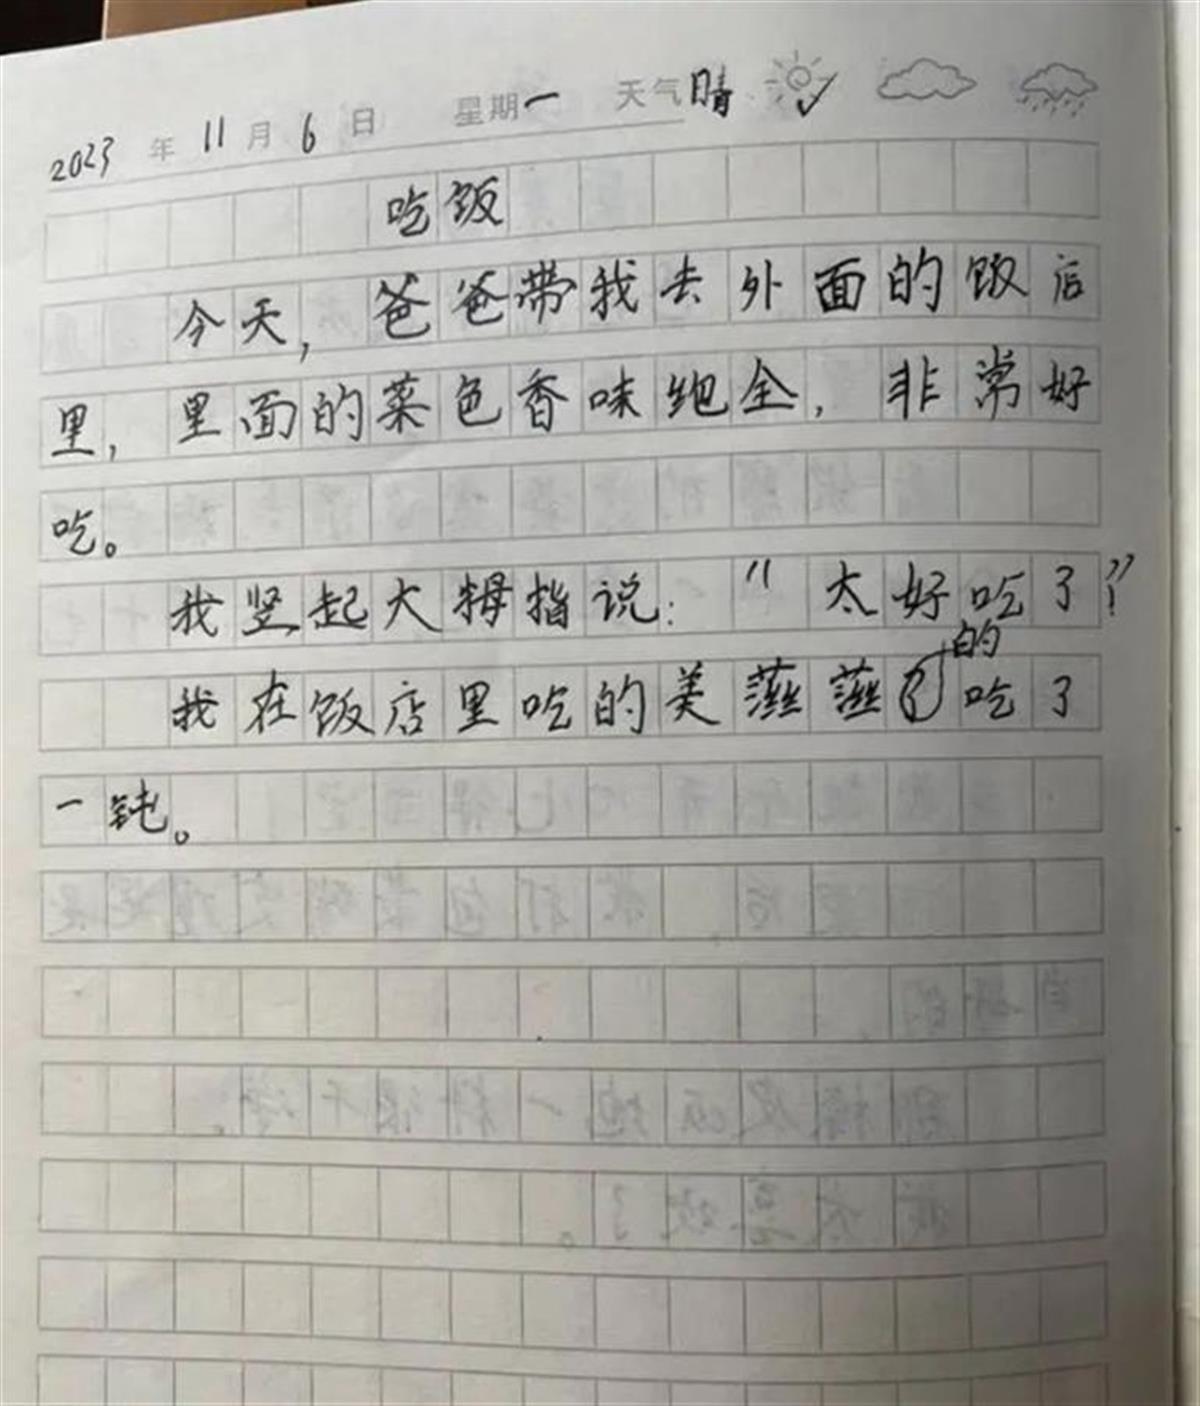 2023年11月6日 星期一 天气晴
吃饭
今天,爸爸带我去外面的饭店
里,里面的菜色香味绝全,非常好
吃。
我竖起大拇指说:“太好吃了!”
的
我在饭店里吃的美滋滋了吃了
一钝。